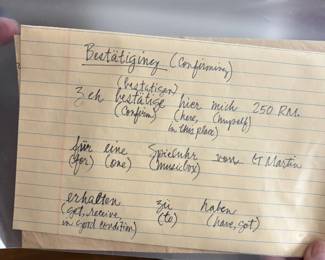 Bestätiging (Confirming)
(bestätigen)
Ich bestätige hier mich 250 RM.
(Confirm) (here, (myself)
in this place)
für eine Spieluhr von Lt Martin
(for) (one) (musicbox)
erhalten zu haben
(get, receive, (to) (have, got)
in good condition)